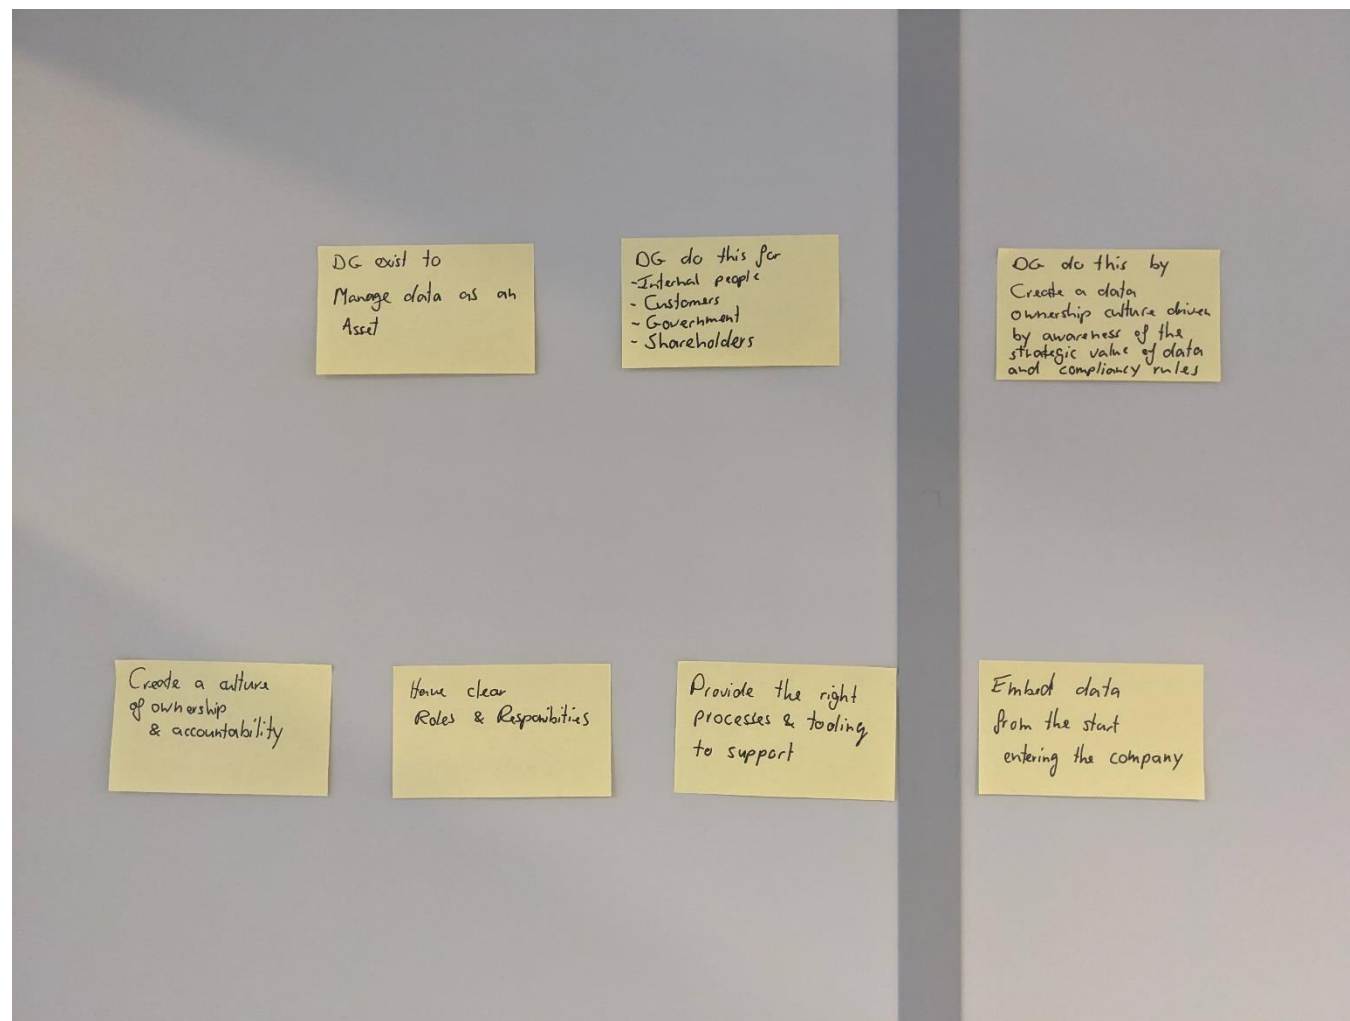 DG exist to
Manage data as an
Asset
DG do this for
-Internal people
- Customers
- Government
- Shareholders
DG do this by
Create a data
ownership culture driven
by awareness of the
strategic value of data
and compliancy rules
Create a culture
of ownership
& accountability
Have clear
Roles & Responibities
Provide the right
processes & tooling
to support
Embed data
from the start
entering the company